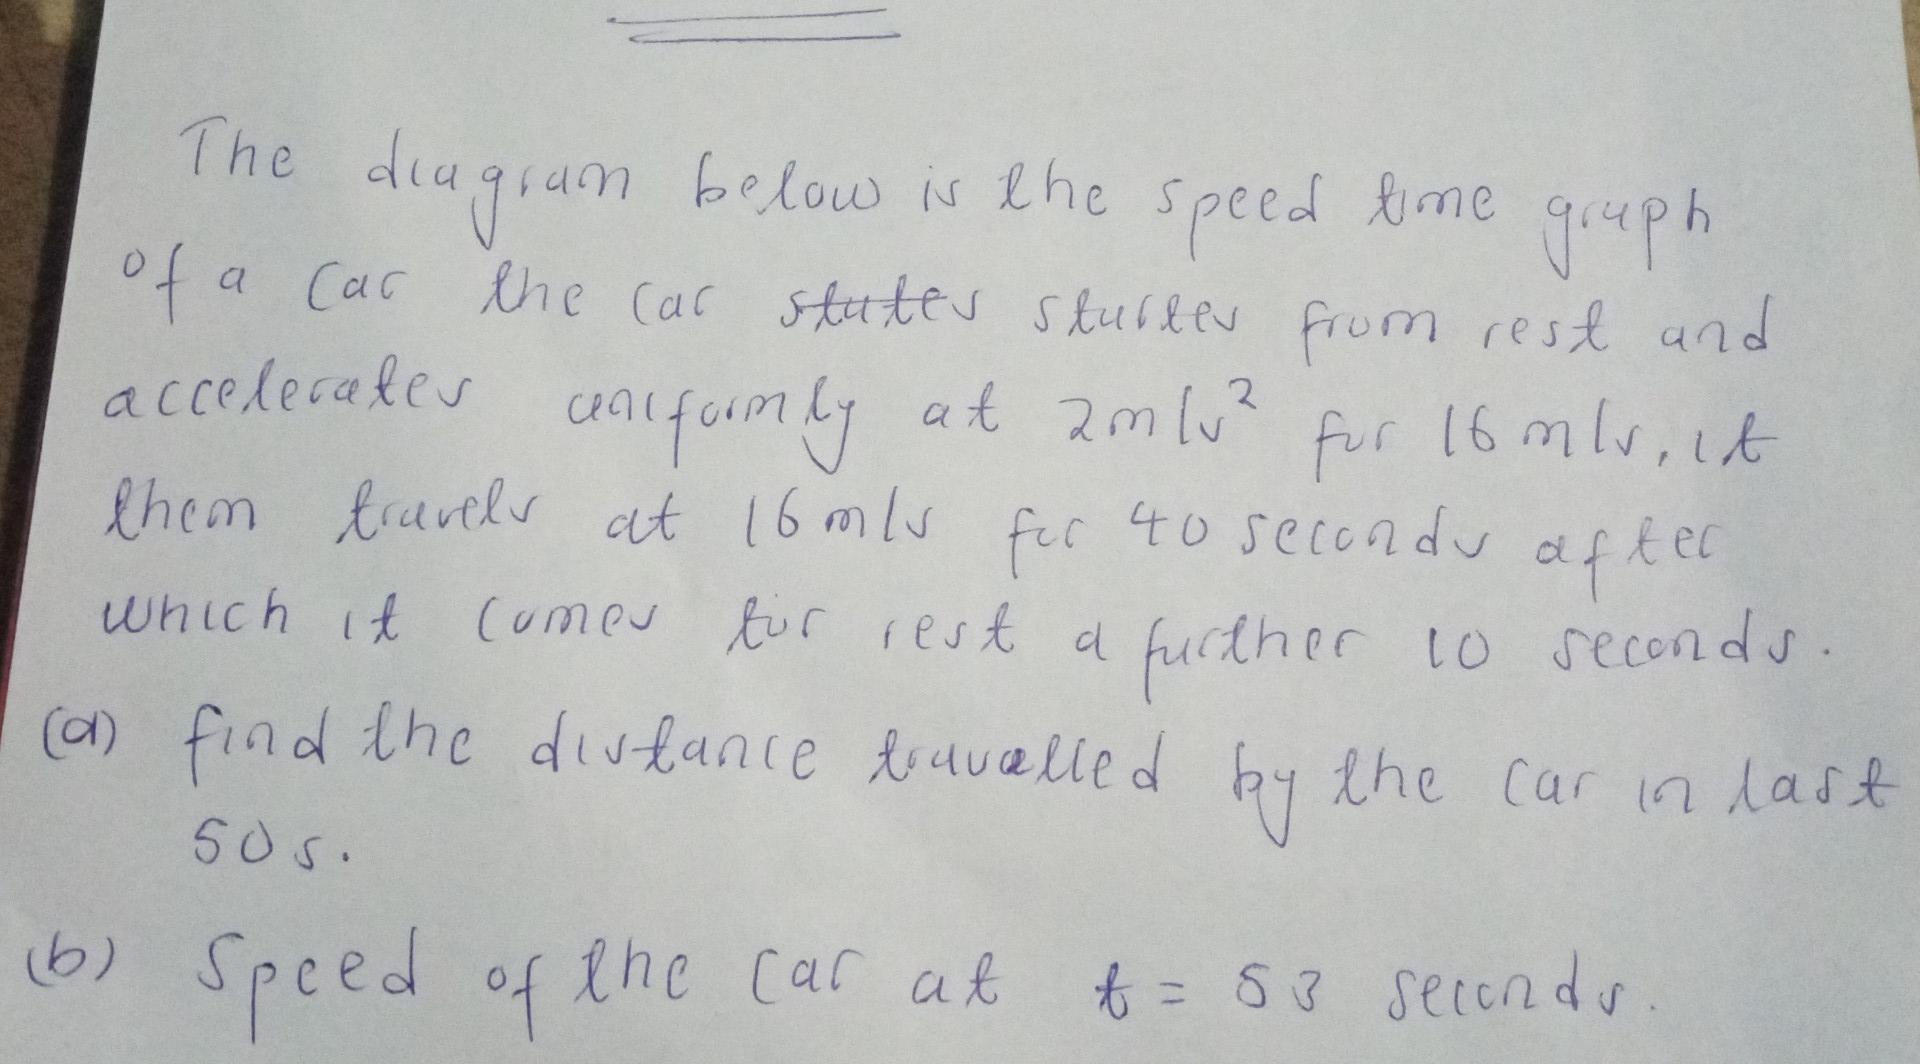 The diagram below is the speed time graph
of a car the car states startes from rest and
accelerates uniformly at 2m/s² for 16 m/s, it
them travels at 16m/s for 40 seconds after
which it comes tor rest a further 10 seconds.
(a) find the distance travelled by the car in last
50s.
(b) Speed of the car at t = 53 seconds.